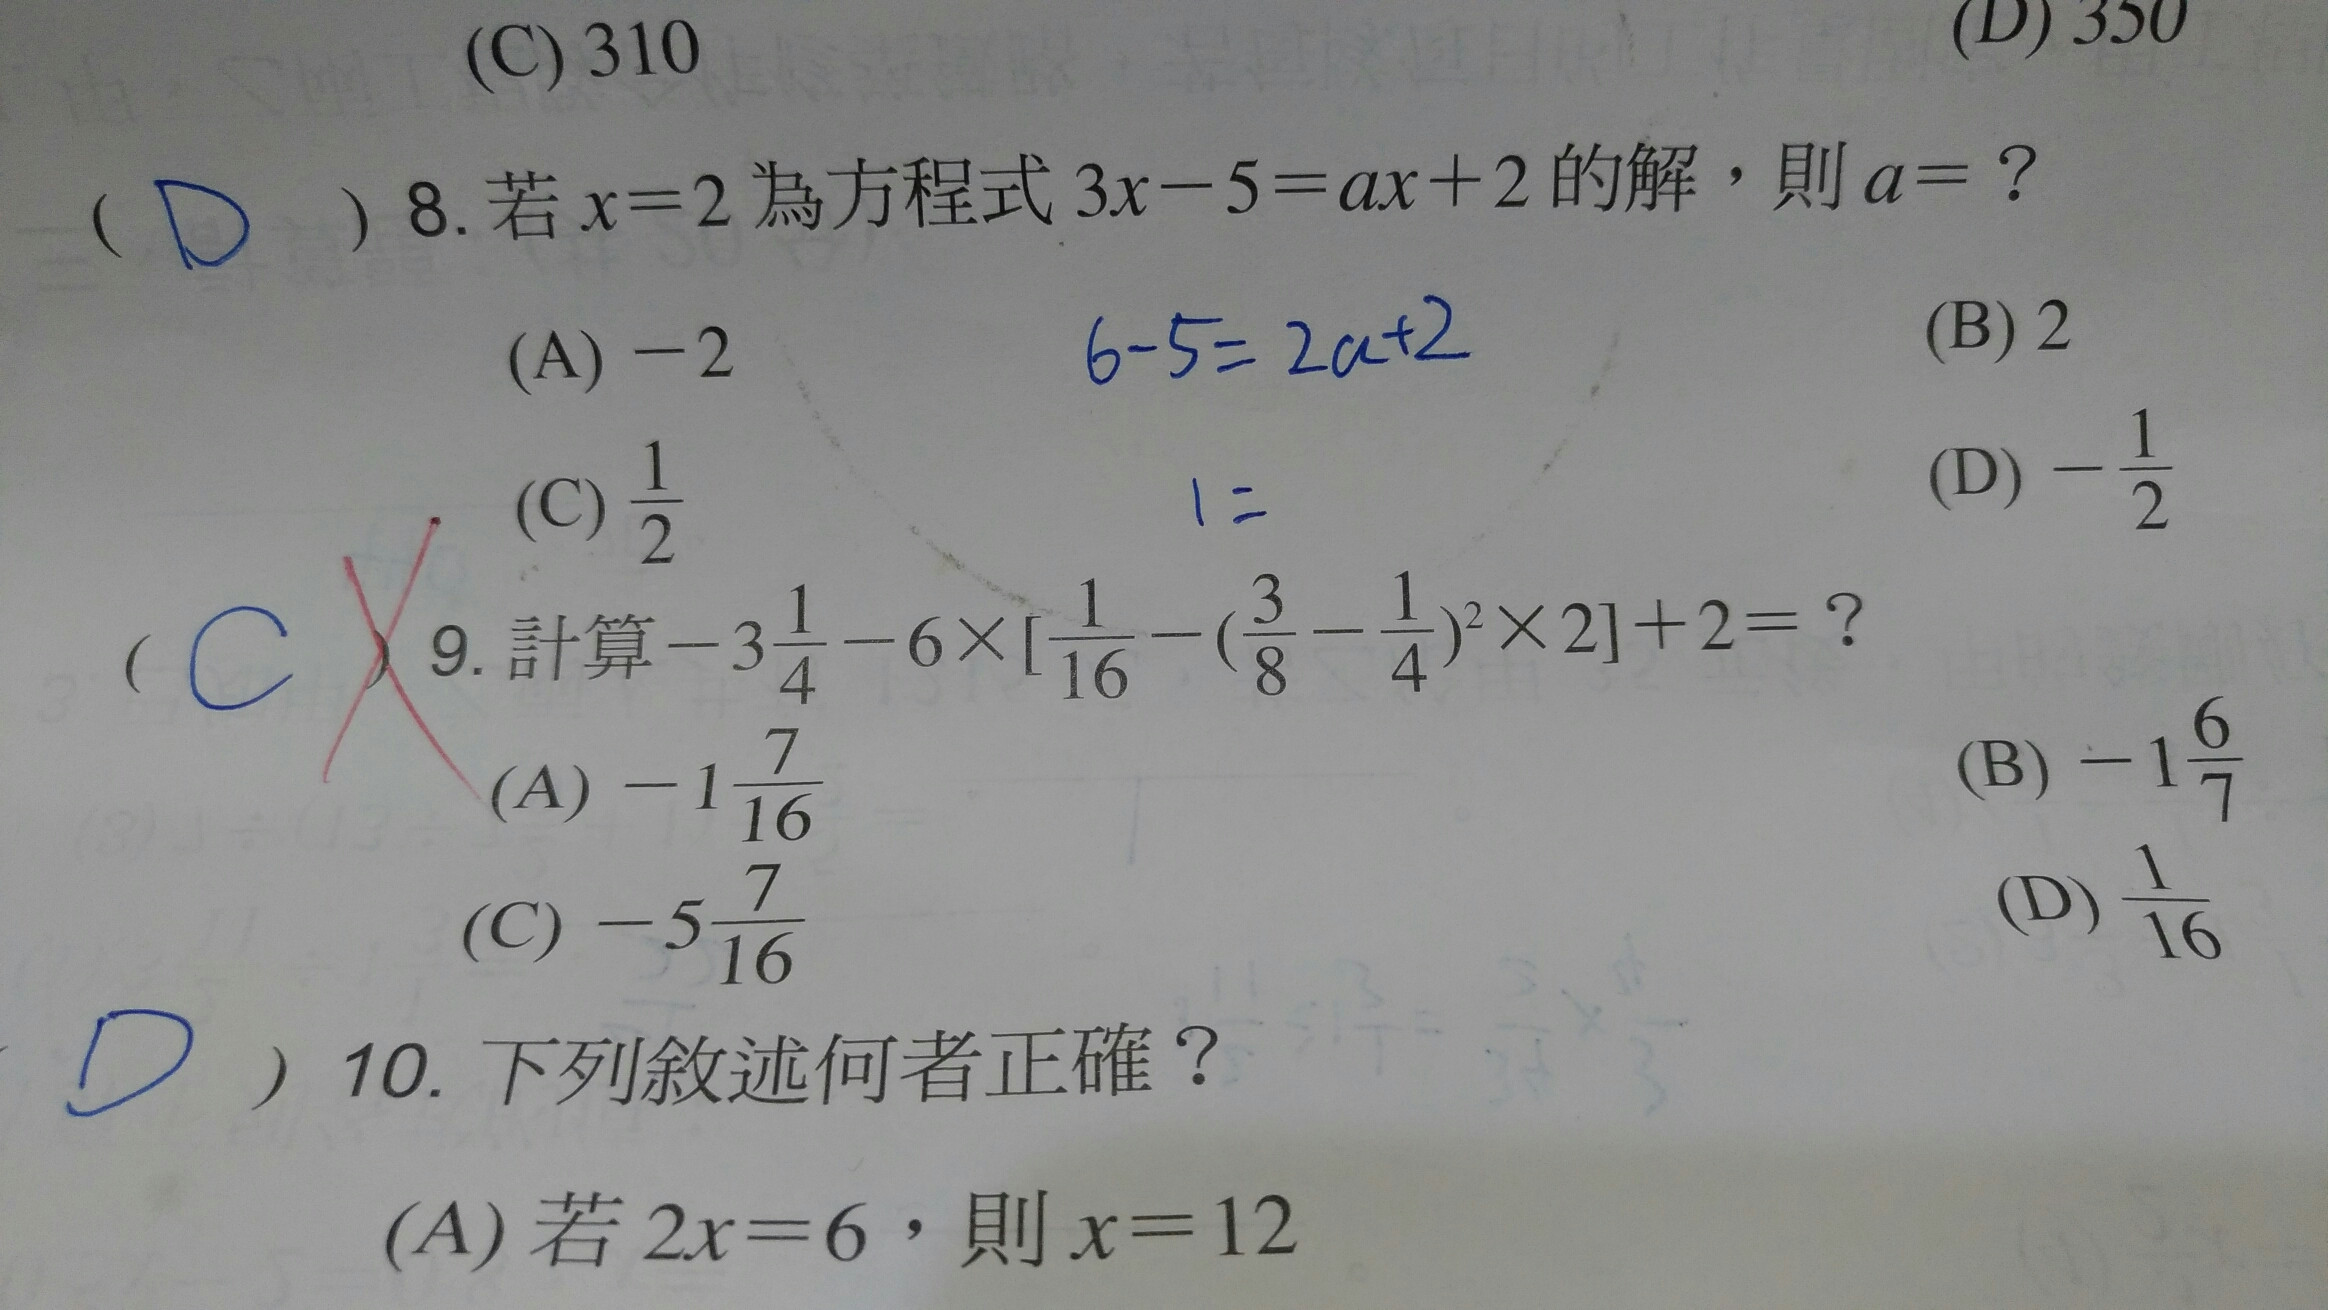 (C) 310 (D) 350
( D ) 8. 若 x=2 為方程式 3x-5=ax+2 的解，則 a=？
(A) -2 6-5=2a+2 (B) 2
(C) 1/2 1= (D) -1/2
( C ) 9. 計算 -3 1/4 -6×[1/16-(3/8-1/4)²×2]+2=？
(A) -1 7/16 (B) -1 6/7
(C) -5 7/16 (D) 1/16
( D ) 10. 下列敘述何者正確？
(A) 若 2x=6，則 x=12